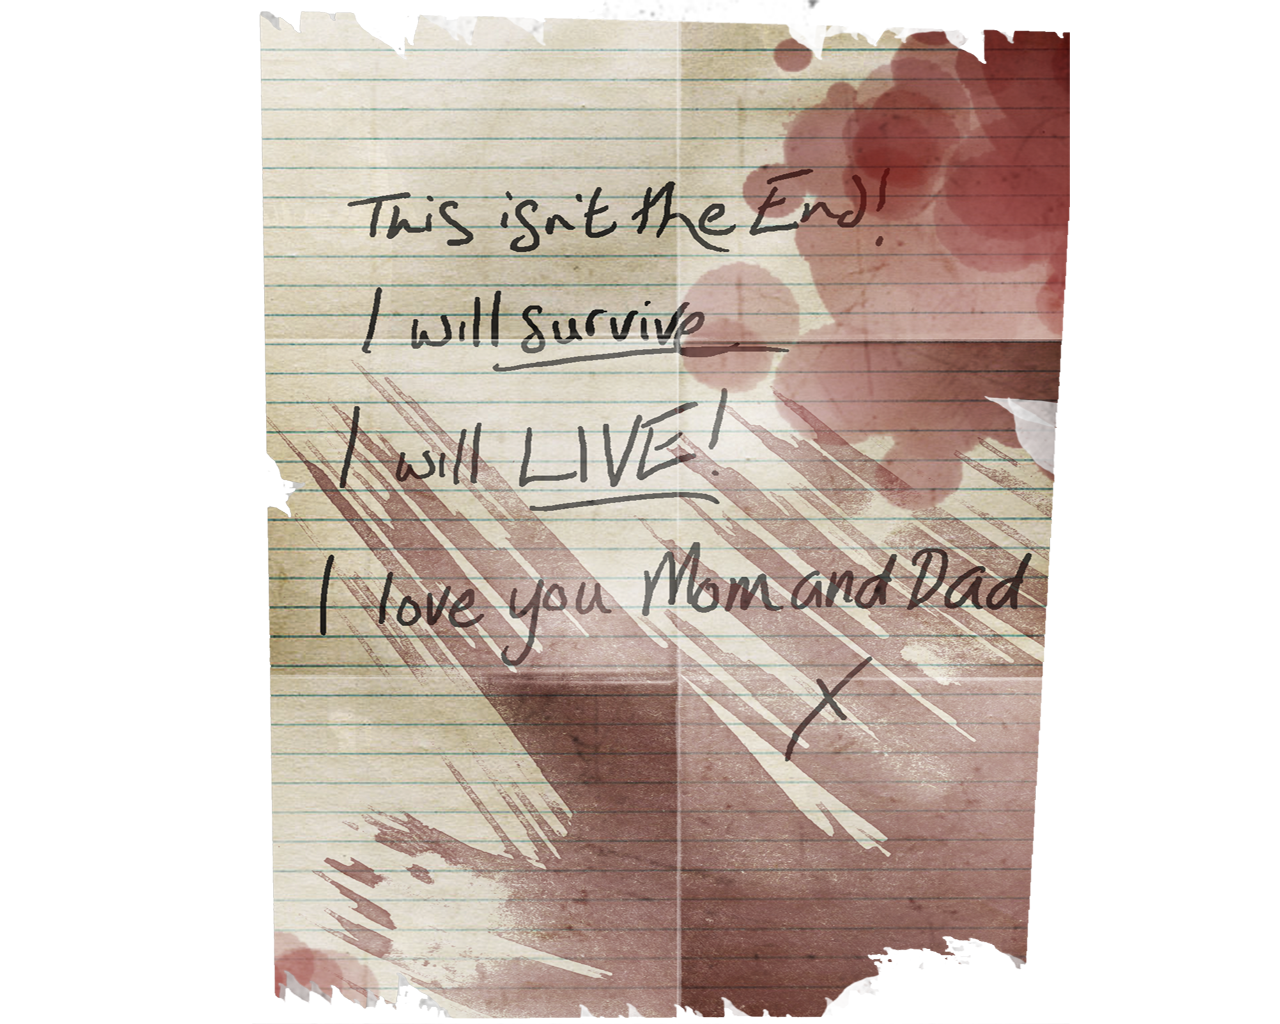 This isn't the End!
I will survive
I will LIVE!
I love you Mom and Dad
X